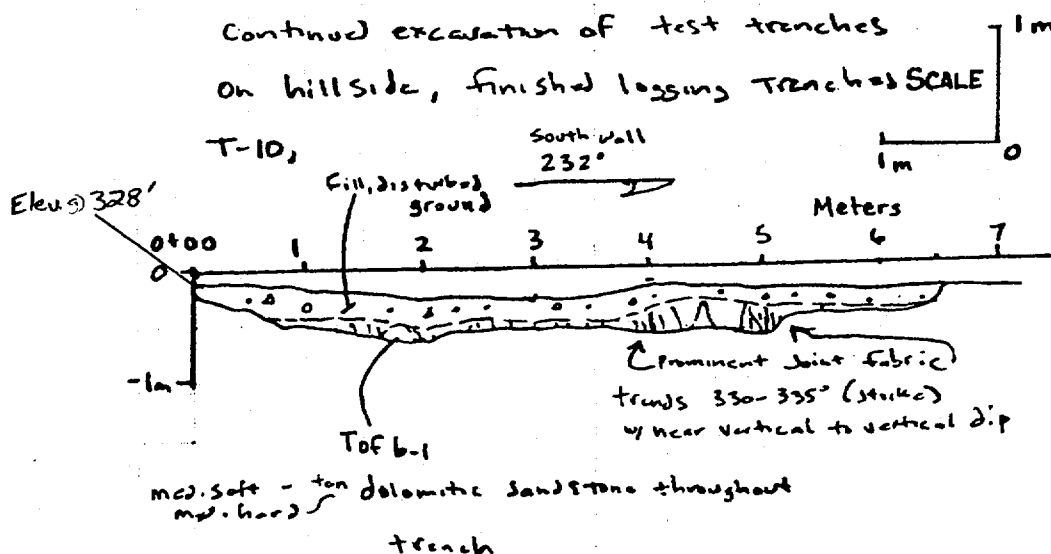 Continued excavation of test trenches
on hillside, finished logging Trenched SCALE
T-10,
1 m
1 m
0
South wall
232°
Elev @ 328'
Fill, disturbed
ground
Meters
0+00 1 2 3 4 5 6 7
0
-1m
Prominent Joint Fabric
trends 330-335° (strike)
w/ near vertical to vertical dip
Tof b-1
med. soft - tan dolomitic sandstone throughout
med. hard
trench